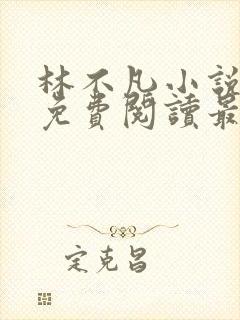 林不凡小說
免費閱讀最
定克昌